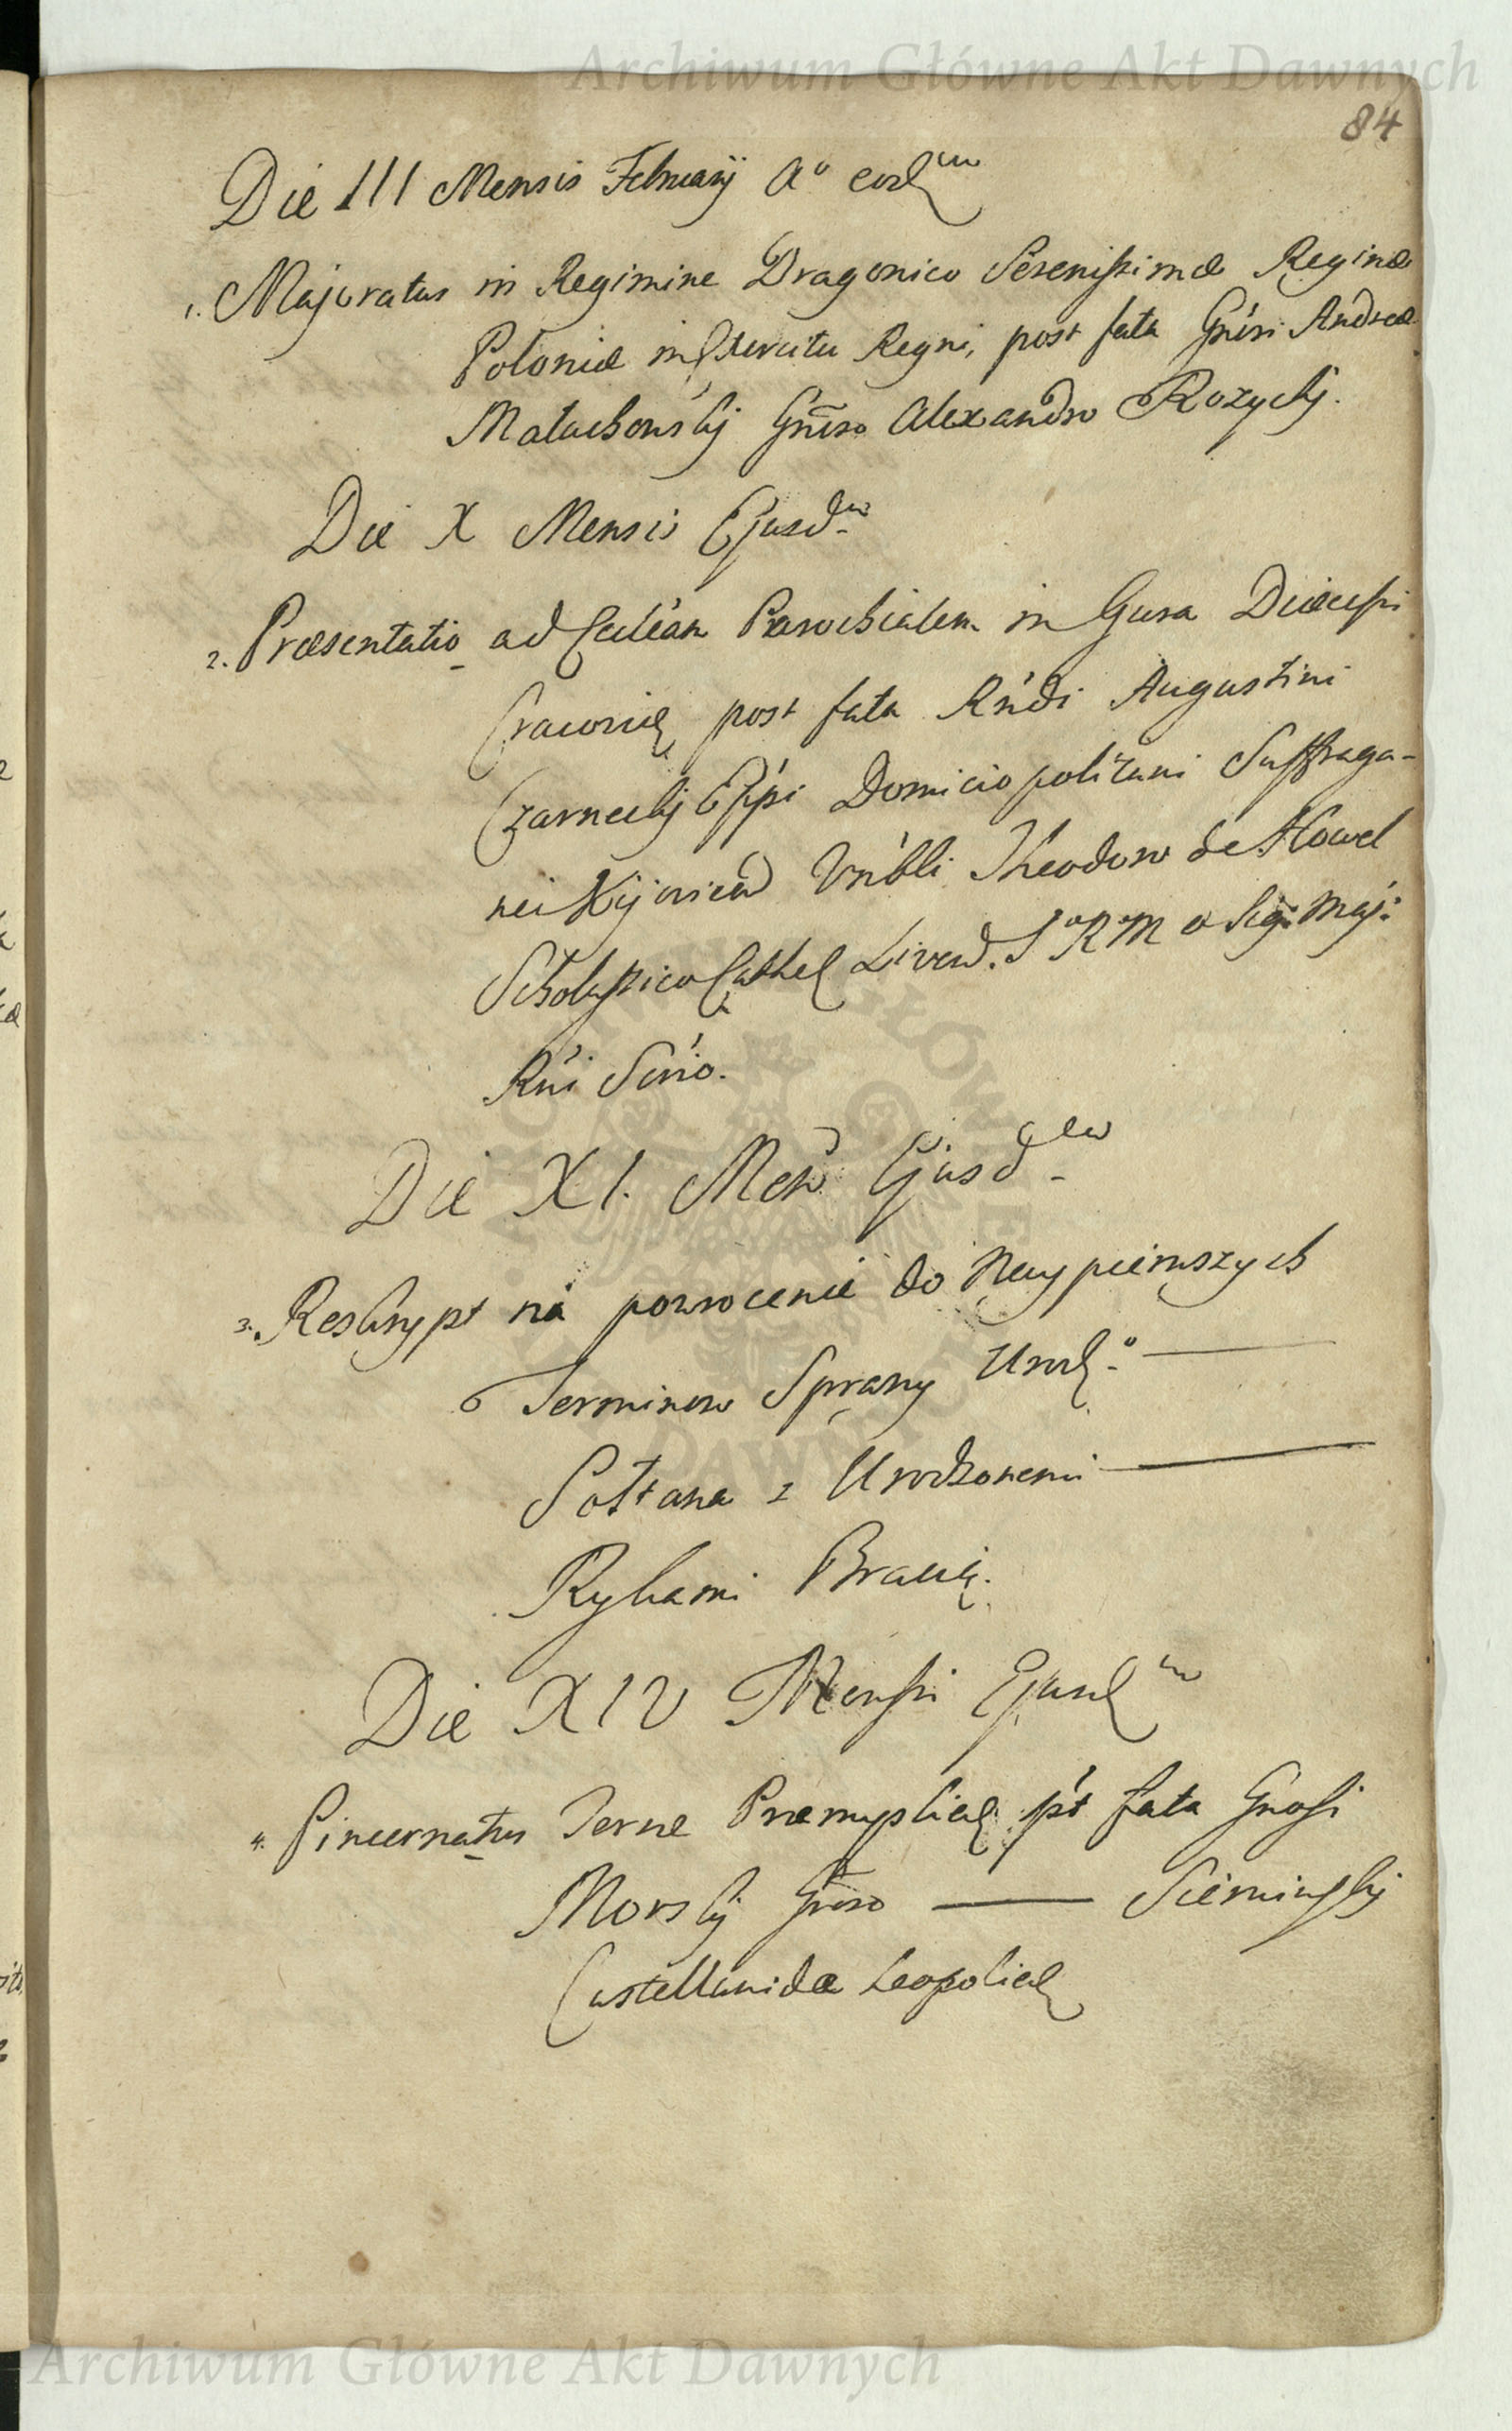 Archiwum Główne Akt Dawnych
84
Die III Mensis Februarij Aº eodem
1. Majoratus in Regimine Dragonico Serenissimæ Reginæ
Poloniæ in Exercitu Regni, post fata Gnĕri Andreæ
Małachowskij Gnĕro Alexandro Rozyckij.
Die X Mensis Ejusdem
2. Præsentatio ad Ecclĕam Parochialem in Gura Diæcesi
Cracovie, post fata Rńdi Augustini
Czarneckij Eṕpi Domiciopolitani Suffraga-
nei Kijovien Vńbli Theodoro de
Scholastico Cathel Livon. S R M a Sig. Maj:
Rńi Scrio.
Die XI. Mens Ejusdem
3. Reskrypt na powrocenie do Naypierwszych
Terminow Sprawy Urodº —
Sołtana z Urodzonemi —
Rykami Bracią.
Die XIV Mensis Ejusdem
4. Pincernatus Terræ Præmysliens pt fata Gnosi
Morskij Gnoso — Siemińskij
Castellanidæ Leopoliens
Archiwum Główne Akt Dawnych